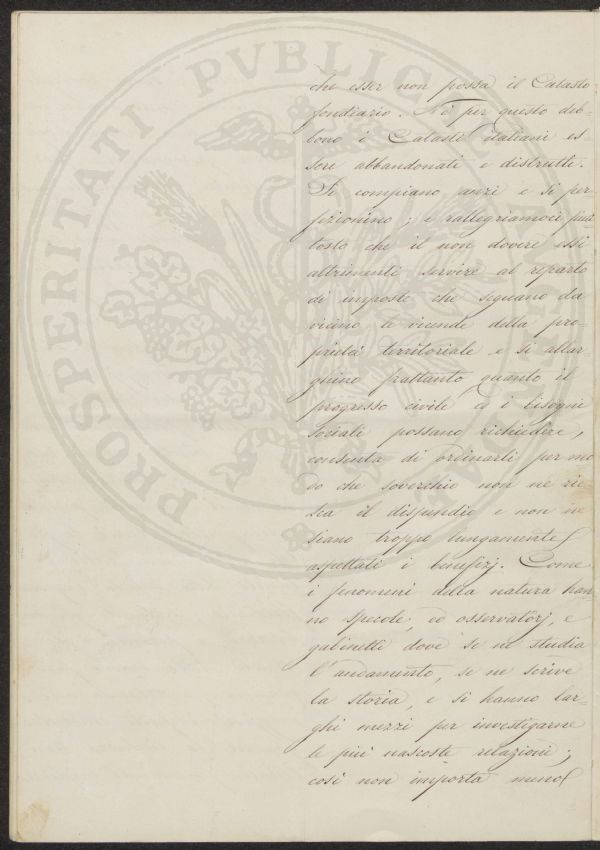 PROSPERITATI PVBLICAE
che esser non possa il Catasto
fondiario. Nè per questo deb-
bono i Catasti italiani es
sere abbandonati e distrutti.
Si compiano anzi e si per
fezionino; e rallegriamoci piut
tosto che il non dovere essi
altrimenti servire al reparto
di imposte che seguano da
vicino le vicende della pro-
prietà territoriale e si allar-
ghino frattanto quanto il
progresso civile ed i bisogni
sociali possano richiedere,
consenta di ordinarli per mo
do che soverchio non ne rie
sca il dispendio e non ne
siano troppo lungamente
aspettati i benefizj. Come
i fenomeni della natura han
no specole, ed osservatorj, e
gabinetti dove se ne studia
l'andamento, se ne scrive
la storia, e si hanno lar-
ghi mezzi per investigarne
le più nascoste relazioni;
così non importa meno